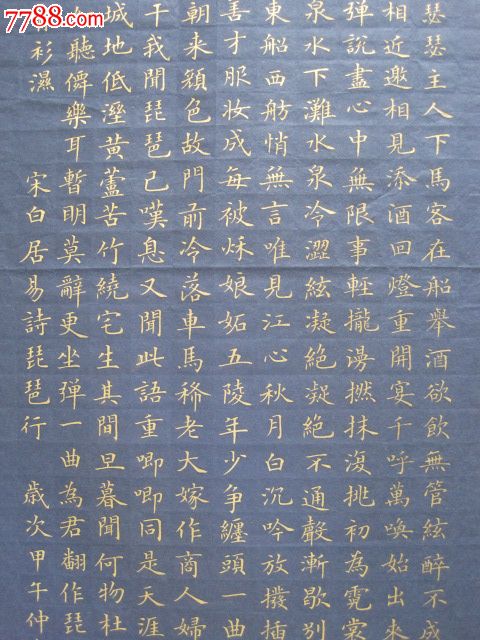 7788.com
瑟瑟主人下馬客在船舉酒欲飲無管絃醉不成
相近邀相見添酒回燈重開宴千呼萬喚始出來
彈說盡心中無限事輕攏謾撚抹復挑初為霓裳
泉水下灘水泉冷澀絃凝絕凝絕不通聲漸歇別
東船西舫悄無言唯見江心秋月白沉吟放撥插
善才服妆成每被秌娘妬五陵年少争纏頭一曲
朝来顏色故門前冷落車馬稀老大嫁作商人婦
干我聞琵琶已嘆息又聞此語重唧唧同是天涯
城地低溼黃蘆苦竹繞宅生其間旦暮聞何物杜
聽僊樂耳暫明莫辭更坐弹一曲為君翻作琵
衫濕 宋白居易詩琵琶行 歲次甲午仲